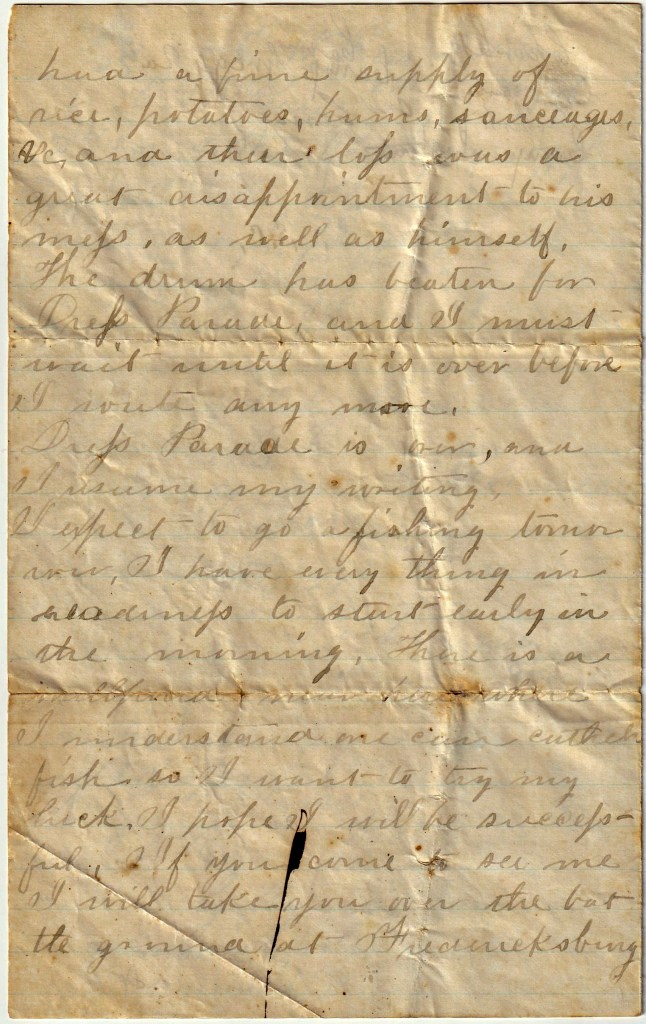 had a fine supply of
rice, potatoes, hams, sauceages,
&c, and their loss was a
great disappointment to his
mess, as well as himself.
The drum has beaten for
Dress Parade, and I must
wait until it is over before
I write any more.
Dress Parade is over, and
I resume my writing.
I expect to go a fishing tomor
row, I have every thing in
readiness to start early in
the morning. There is a
millpond near here where
I understand one can catch
fish so I want to try my
luck. I hope I will be success-
ful, If you come to see me
I will take you over the bat
tle ground at Fredericksburg